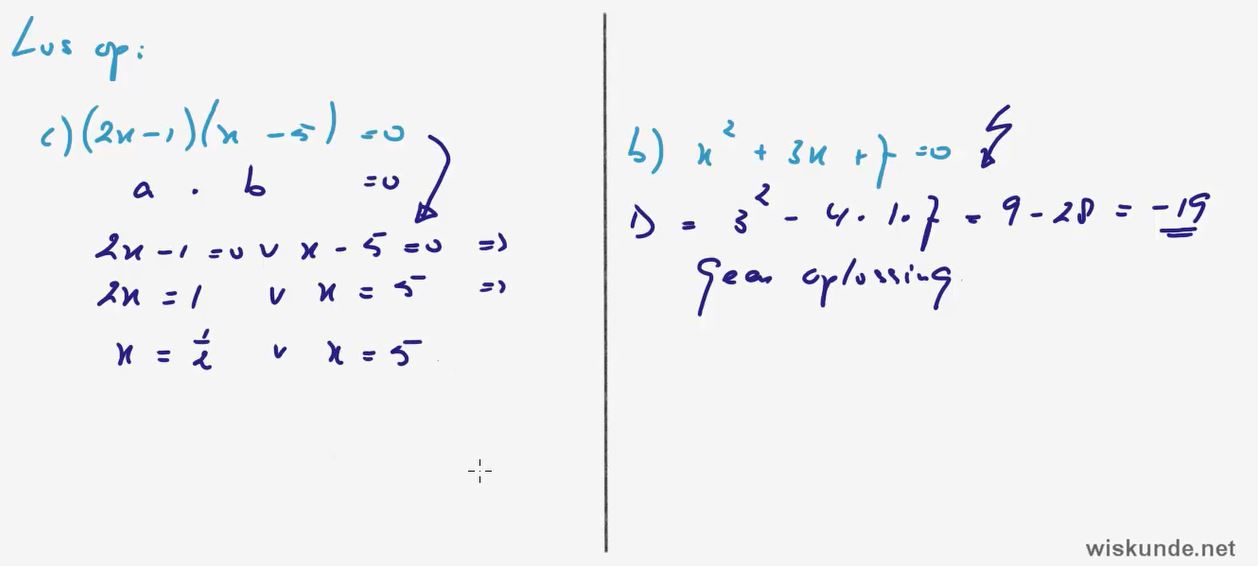 Los op:
c) (2x-1)(x-5) =0
a . b =0
2x-1=0 v x-5=0 =>
2x=1 v x=5 =>
x=½ v x=5
b) x²+3x+7=0
D = 3²-4.1.7 = 9-28 = -19
Geen oplossing
wiskunde.net